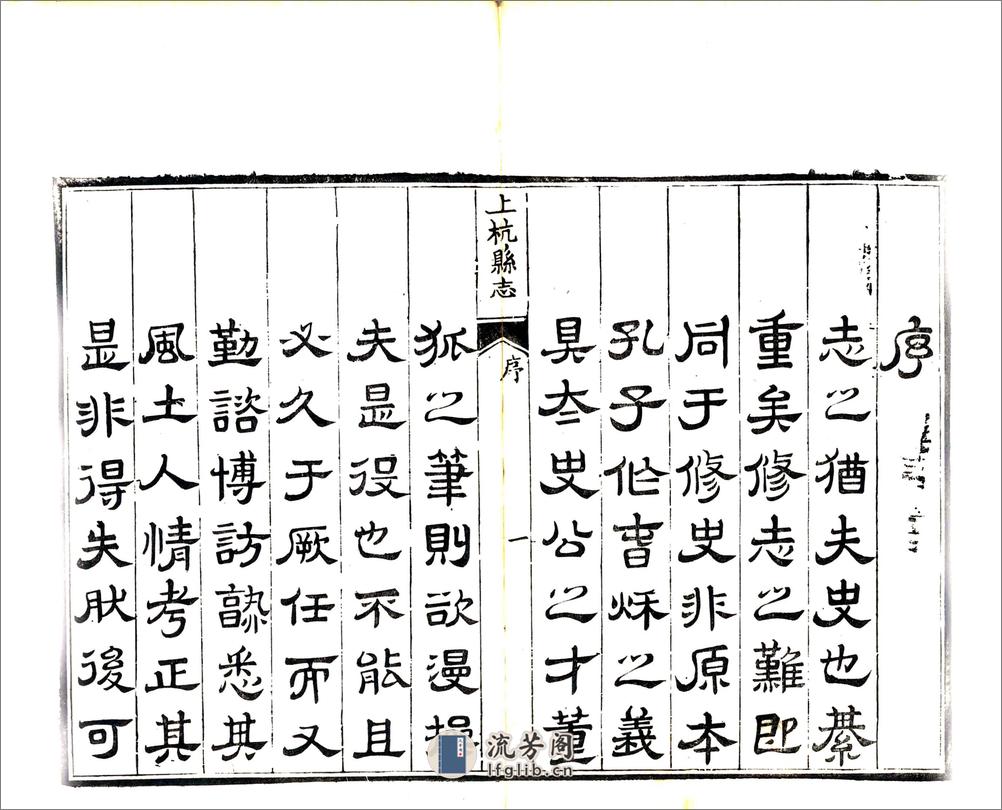 序
志之猶夫史也綦
重矣修志之難即
同于修史非原本
孔子作春秋之義
具太史公之才董
上杭縣志
序
一
狐之筆則欲漫操
夫是役也不能且
必久于厥任而又
勤諮博訪熟悉其
風土人情考正其
是非得失肰後可
流芳阁
lfglib.cn